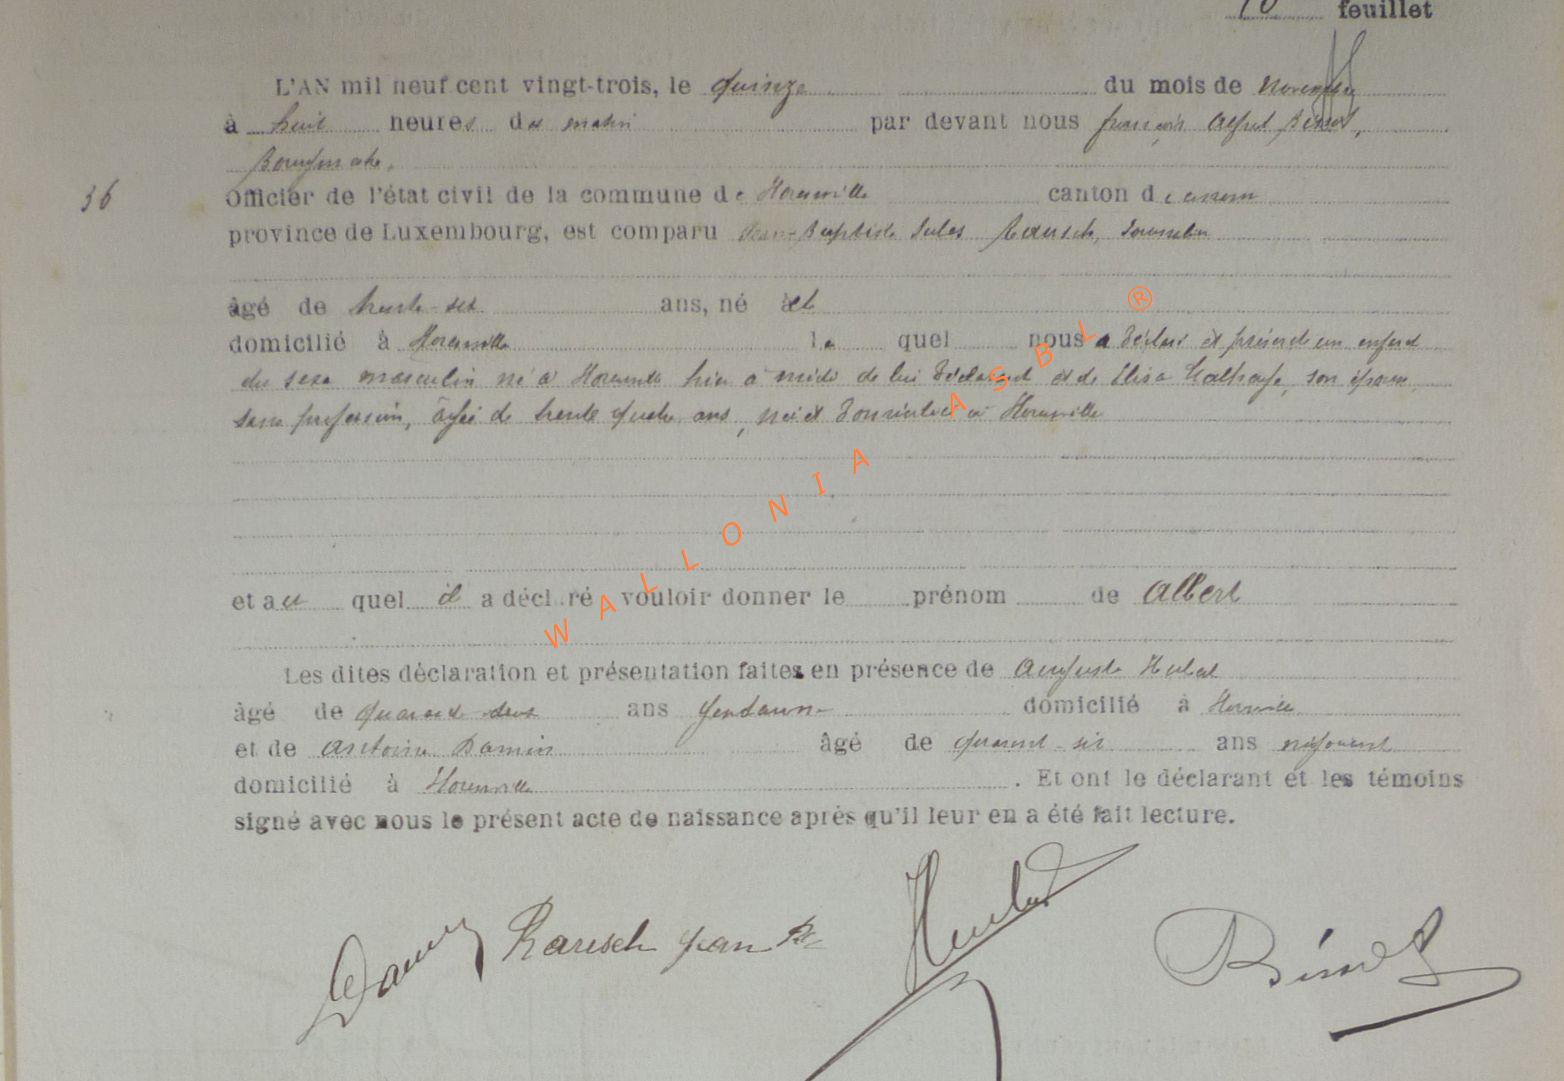 10 feuillet
L'AN mil neuf cent vingt-trois, le quinze du mois de novembre
à huit heures du matin par devant nous françois Alfred
Bourgmestre,
36 Officier de l'état civil de la commune de Houmville canton de
province de Luxembourg, est comparu Jean-Baptiste Jules Rausch, Journalier
âgé de trente-six ans, né à et
domicilié à le quel nous a déclaré et présenté un enfant
du sexe masculin né à hier à midi de lui déclarant et de Elisa son épouse
sans profession, âgée de trente quatre ans, née et domiciliée à
et au quel il a déclaré vouloir donner le prénom de Albert
Les dites déclaration et présentation faites en présence de Auguste Hubert
âgé de quarante deux ans domicilié à
et de Antoine Damin âgé de quarante-six ans négociant
domicilié à . Et ont le déclarant et les témoins
signé avec nous le présent acte de naissance après qu'il leur en a été fait lecture.
Rausch Jean Bte
WALLONIA ASBL ®